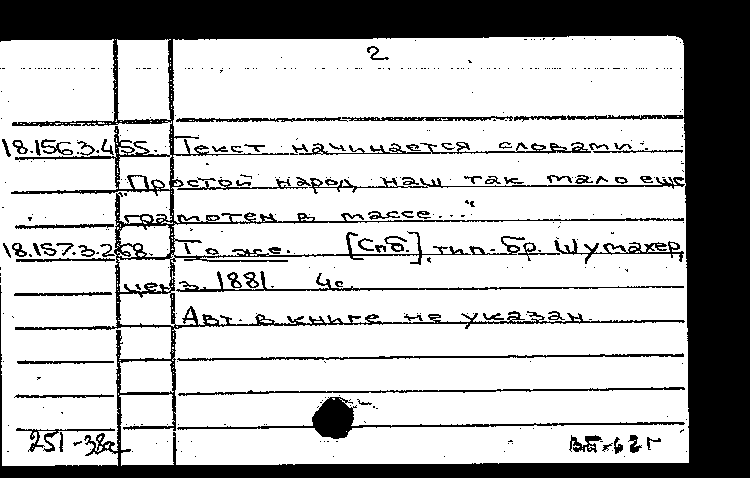 2.
18.156.3.455. Текст начинается словами:
"Простой народ наш так мало еще
грамотен в массе..."
18.157.3.268. То же. [Спб.], тип. бр. Шумахер,
ценз. 1881. 4с.
Авт. в книге не указан.
251-38а